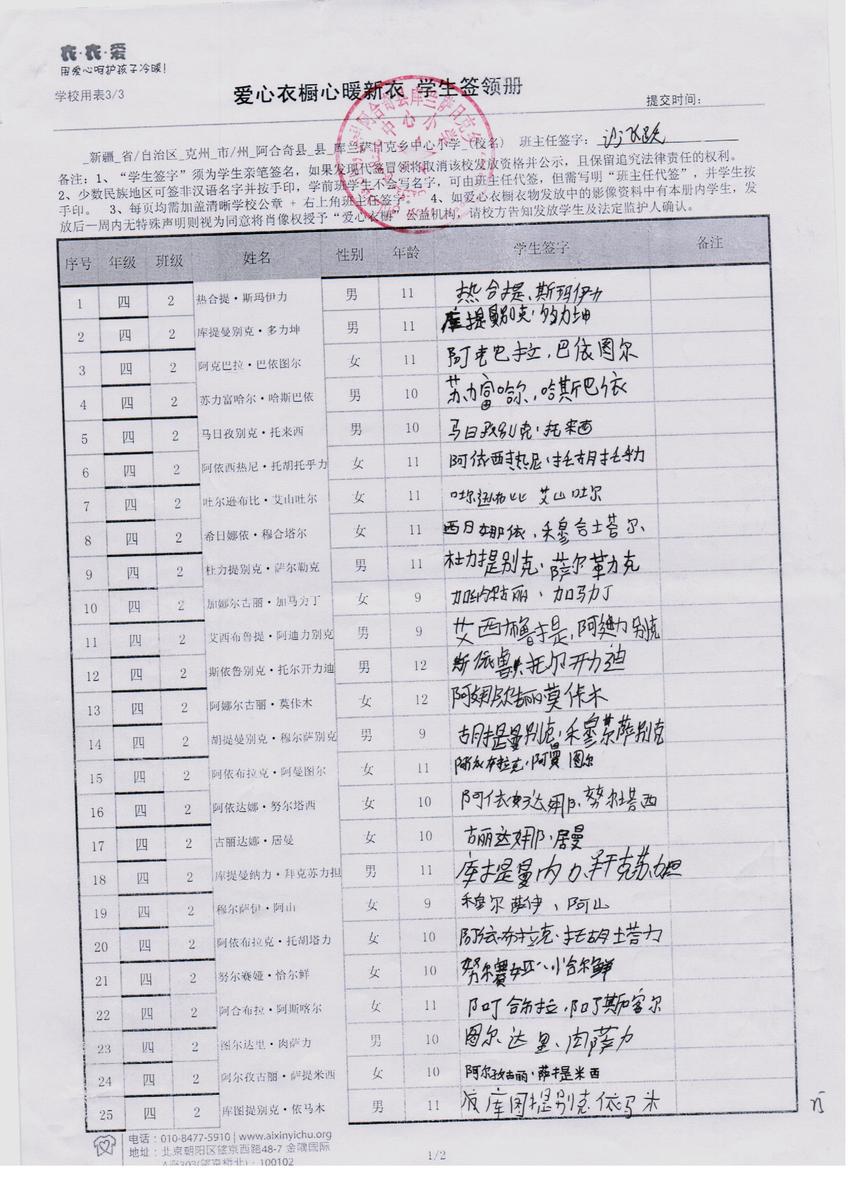 衣·衣·爱
用爱心呵护孩子冷暖!
学校用表3/3
爱心衣橱心暖新衣 学生签领册
提交时间:
_新疆_省/自治区_克州_市/州_阿合奇县_县_库兰萨日克乡中心小学_(校名) 班主任签字:
备注:1、“学生签字”须为学生亲笔签名,如果发现代签冒领将取消该校发放资格并公示,且保留追究法律责任的权利。
2、少数民族地区可签非汉语名字并按手印,学前班学生不会写名字,可由班主任代签,但需写明“班主任代签”,并学生按
手印。 3、每页均需加盖清晰学校公章 + 右上角班主任签字。 4、如爱心衣橱衣物发放中的影像资料中有本册内学生,发
放后一周内无特殊声明则视为同意将肖像权授予“爱心衣橱”公益机构,请校方告知发放学生及法定监护人确认。
序号 年级 班级 姓名 性别 年龄 学生签字 备注
1 四 2 热合提·斯玛伊力 男 11 热合提、斯玛伊力
2 四 2 库提曼别克·多力坤 男 11 库提曼别克·多力坤
3 四 2 阿克巴拉·巴依图尔 女 11 阿克巴拉,巴依图尔
4 四 2 苏力富哈尔·哈斯巴依 男 10 苏力富哈尔,哈斯巴依
5 四 2 马日孜别克·托来西 男 10 马日孜别克·托来西
6 四 2 阿依西热尼·托胡托乎力 女 11 阿依西热尼·托胡托乎力
7 四 2 吐尔逊布比·艾山吐尔 女 11 吐尔逊布比 艾山吐尔
8 四 2 希日娜依·穆合塔尔 女 11 西日娜依,穆合塔尔、
9 四 2 杜力提别克·萨尔勒克 男 11 杜力提别克·萨尔勒克
10 四 2 加娜尔古丽·加马力丁 女 9 加纳古丽、加马力丁
11 四 2 艾西布鲁提·阿迪力别克 男 9 艾西布鲁提,阿迪力别克
12 四 2 斯依鲁别克·托尔开力迪 男 12 托尔开力迪
13 四 2 阿娜尔古丽·莫佧木 女 12 阿娜尔古丽莫佧木
14 四 2 胡提曼别克·穆尔萨别克 男 9 胡提曼别克·穆尔萨别克
15 四 2 阿依布拉克·阿曼图尔 女 11 阿依布拉克·阿曼图尔
16 四 2 阿依达娜·努尔塔西 女 10 阿依达娜、努尔塔西
17 四 2 古丽达娜·居曼 女 10 古丽达娜·居曼
18 四 2 库提曼纳力·拜克苏力担 男 11 库提曼内力,拜克苏力担
19 四 2 穆尔萨伊·阿山 女 9 穆尔萨伊、阿山
20 四 2 阿依布拉克·托胡塔力 女 10 阿依布拉克·托胡塔力
21 四 2 努尔赛娅·恰尔鲜 女 10 努尔赛娅·恰尔鲜
22 四 2 阿合布拉·阿斯喀尔 女 11 阿合布拉,阿斯喀尔
23 四 2 图尔达里·肉萨力 男 10 图尔达里、肉萨力
24 四 2 阿尔孜古丽·萨提米西 女 10 阿尔孜古丽·萨提米西
25 四 2 库图提别克·依马木 男 11 库图提别克依马木
电话:010-8477-5910 | www.aixinyichu.org
地址:北京朝阳区望京西路48-7 金隅国际
A座303(望京桥北)·100102
1/2